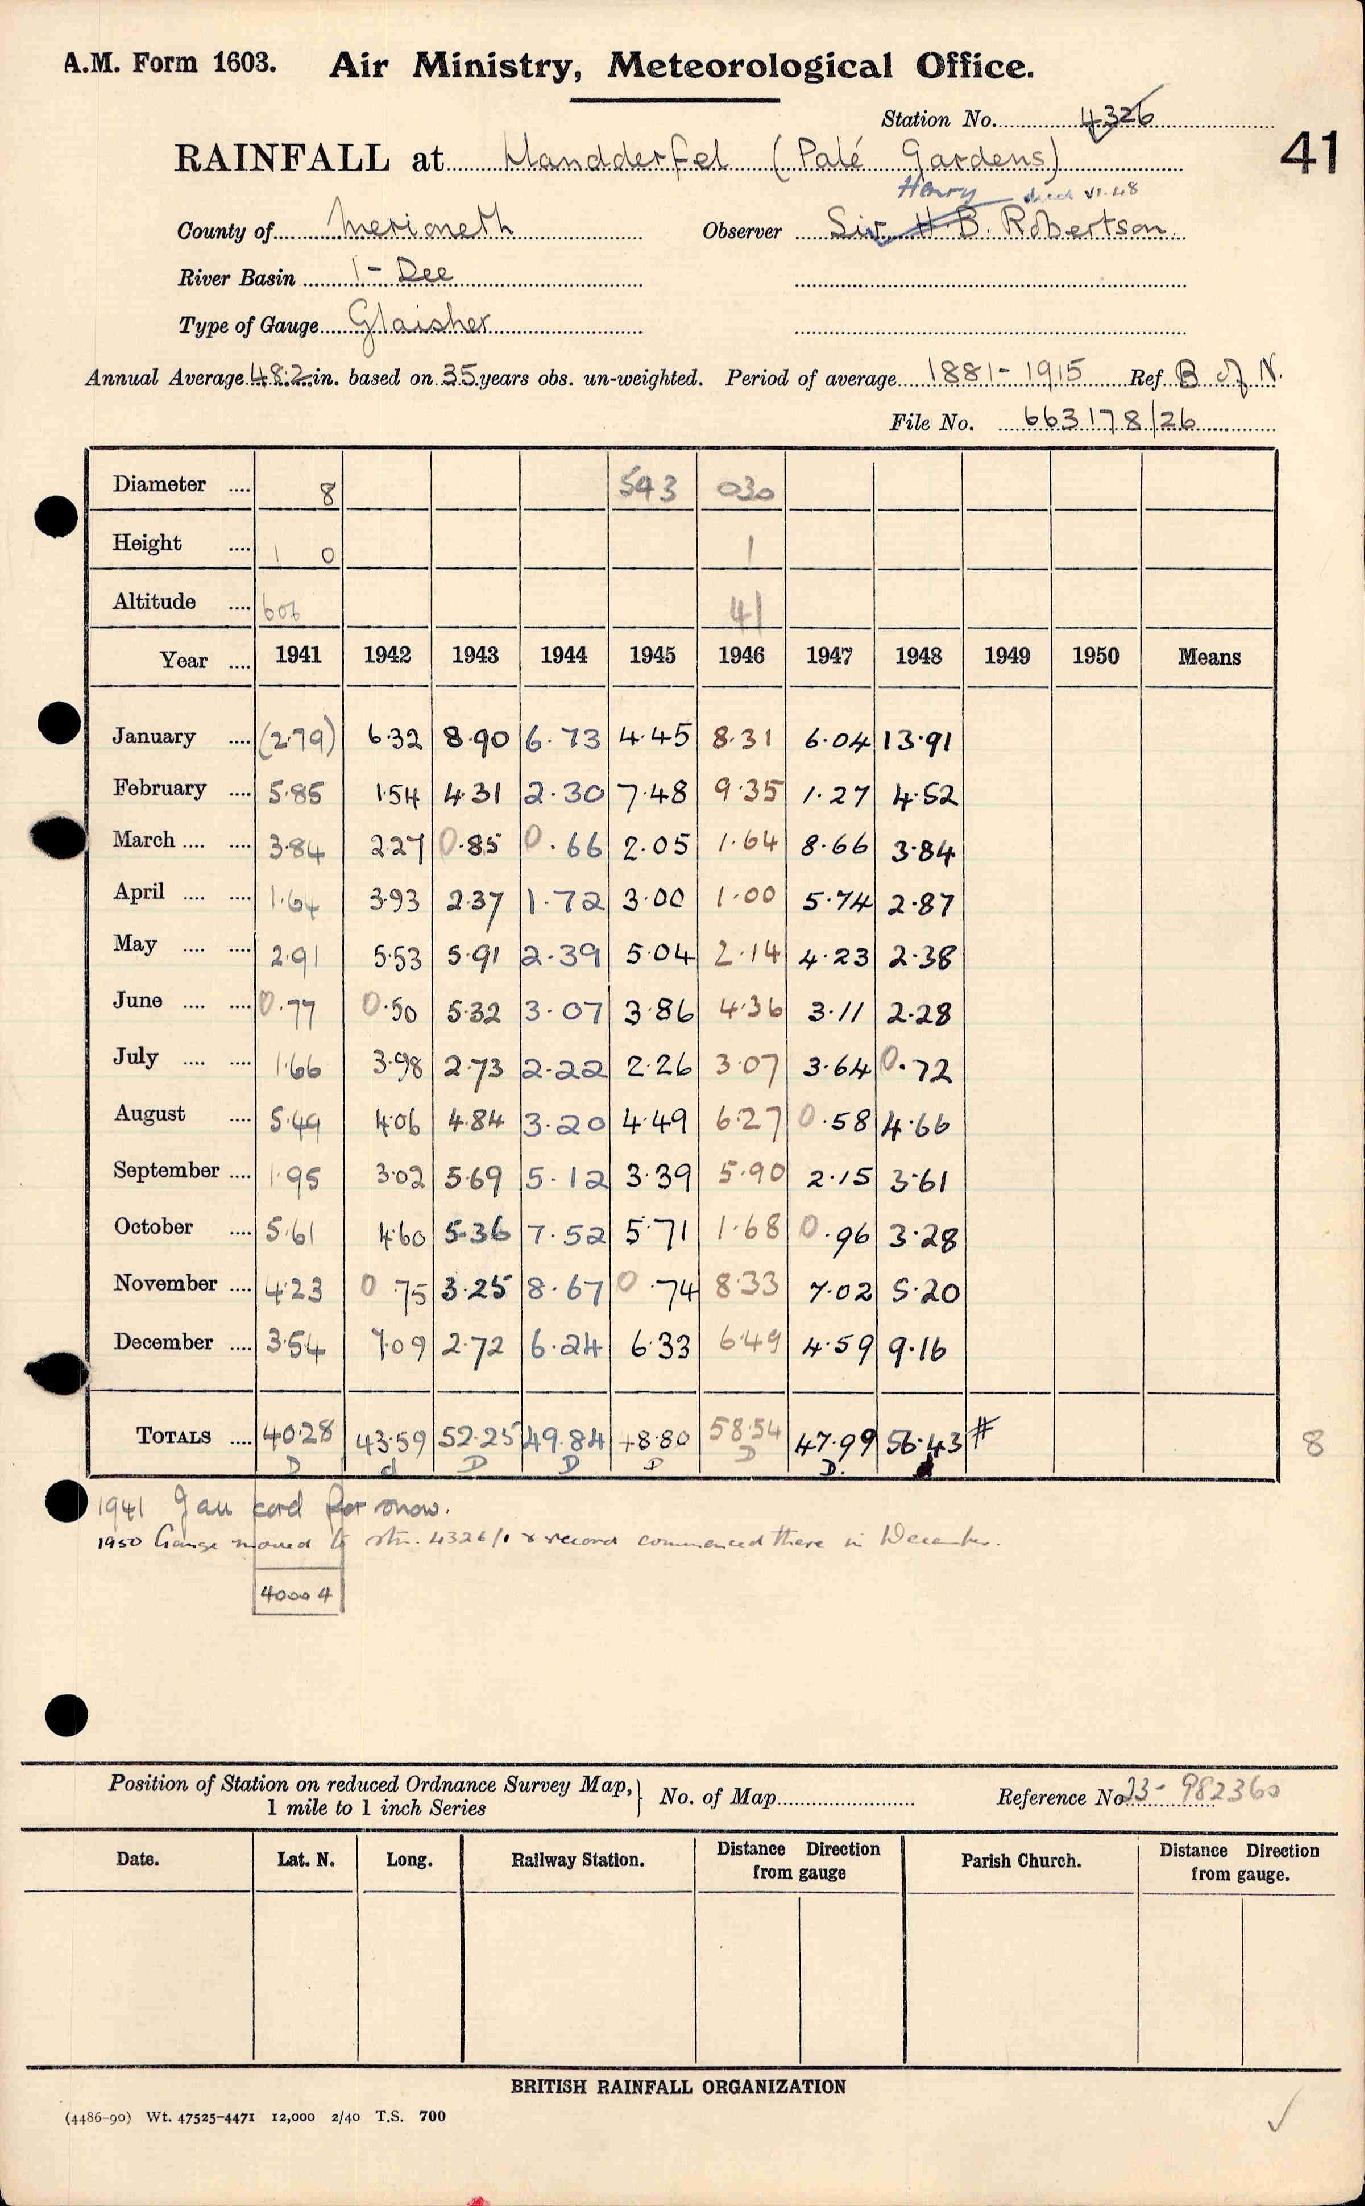 A.M. Form 1603. Air Ministry, Meteorological Office.
Station No. 4326
41
RAINFALL at Llandderfel (Palé Gardens)
Henry died VI.48
County of Merioneth Observer Sir H B. Robertson
River Basin 1 - Dee
Type of Gauge Glaisher
Annual Average 48.2 in. based on 35 years obs. un-weighted. Period of average 1881 - 1915 Ref. B of N.
File No. 663178/26
Diameter .... 8 543 030
Height .... 1 0 1
Altitude .... 606 41
Year .... 1941 1942 1943 1944 1945 1946 1947 1948 1949 1950 Means
January .... (2.79) 6.32 8.90 6.73 4.45 8.31 6.04 13.91
February .... 5.85 1.54 4.31 2.30 7.48 9.35 1.27 4.52
March .... .... 3.84 2.27 0.85 0.66 2.05 1.64 8.66 3.84
April .... .... 1.64 3.93 2.37 1.72 3.00 1.00 5.74 2.87
May .... .... 2.91 5.53 5.91 2.39 5.04 2.14 4.23 2.38
June .... .... 0.77 0.50 5.32 3.07 3.86 4.36 3.11 2.28
July .... .... 1.66 3.98 2.73 2.22 2.26 3.07 3.64 0.72
August .... 5.49 4.06 4.84 3.20 4.49 6.27 0.58 4.66
September .... 1.95 3.02 5.69 5.12 3.39 5.90 2.15 3.61
October .... 5.61 4.60 5.36 7.52 5.71 1.68 0.96 3.28
November .... 4.23 0.75 3.25 8.67 0.74 8.33 7.02 5.20
December .... 3.54 7.09 2.72 6.24 6.33 6.49 4.59 9.16
TOTALS .... 40.28 43.59 52.25 49.84 48.80 58.54 47.99 56.43 #
D d D D D D D. d
8
1941 Jan cord for snow.
1950 Gauge moved to stn. 4326/1 & record commenced there in December.
40004
Position of Station on reduced Ordnance Survey Map, 1 mile to 1 inch Series No. of Map Reference No 23- 982360
Date. Lat. N. Long. Railway Station. Distance Direction from gauge Parish Church. Distance Direction from gauge.
BRITISH RAINFALL ORGANIZATION
(4486-90) Wt. 47525-4471 12,000 2/40 T.S. 700